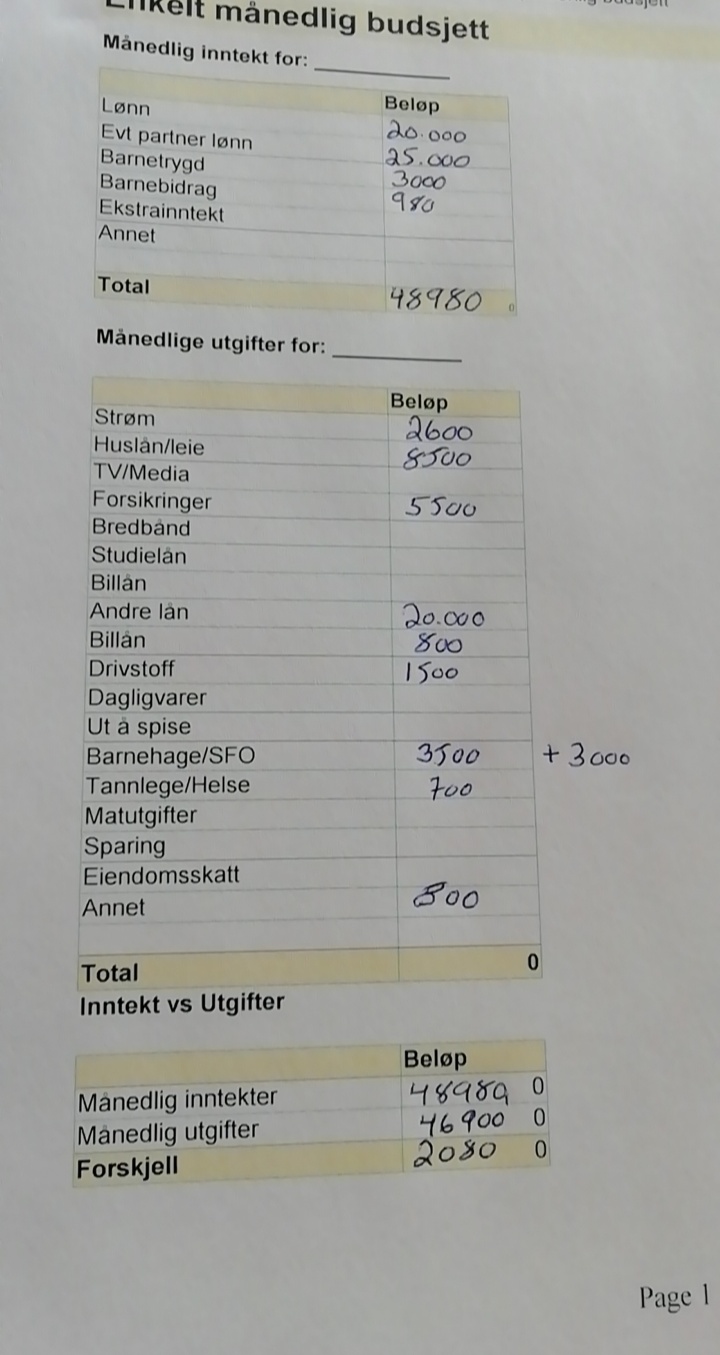 Enkelt månedlig budsjett
Månedlig inntekt for: __________
Beløp
Lønn 20.000
Evt partner lønn 25.000
Barnetrygd 3000
Barnebidrag 980
Ekstrainntekt
Annet
Total 48980 0
Månedlige utgifter for: __________
Beløp
Strøm 2600
Huslån/leie 8500
TV/Media
Forsikringer 5500
Bredbånd
Studielån
Billån
Andre lån 20.000
Billån 800
Drivstoff 1500
Dagligvarer
Ut å spise
Barnehage/SFO 3500 + 3000
Tannlege/Helse 700
Matutgifter
Sparing
Eiendomsskatt
Annet 800
Total 0
Inntekt vs Utgifter
Beløp
Månedlig inntekter 48980 0
Månedlig utgifter 46900 0
Forskjell 2080 0
Page 1